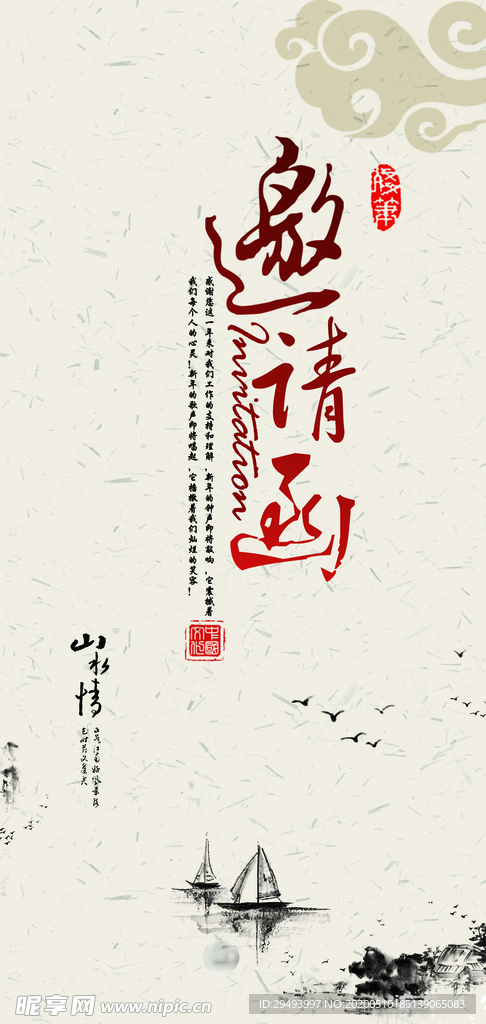 邀请函
Invitation
感谢您这一年来对我们工作的支持和理解,新年的钟声即将敲响,它震撼着
我们每个人的心灵!新年的歌声即将唱起,它播撒着我们灿烂的笑容!
中国
文化
山水情
昵享网 www.nipic.cn
ID:29493997 NO:20200510185139065083